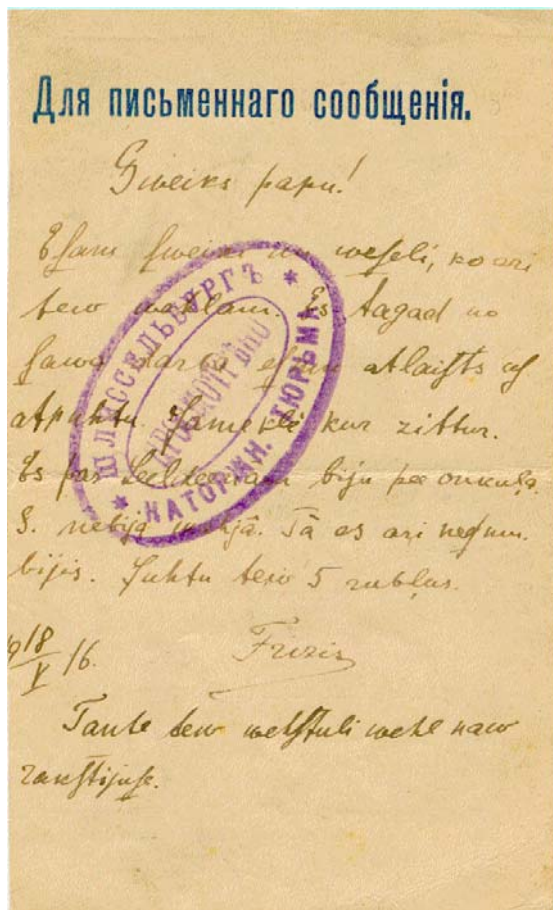 Для письменнаго сообщенія.
Sweiks papu!
Esam sweiki un weseli, ko ari
tew wehlam. Es tagad no
sawa darba esmu atlaists uf
atpuhtu. Jamekle kur zittur.
Es par leeldeenam biju pee onkuļa.
S. nebija mahjâ. Tâ es ari
bijis. Suhtu tew 5 rubļus.
1918/V 16. Frizis
Tante tew wehstuli wehl naw
rakstijuse.
ШЛИССЕЛЬБУРГЪ
КАТОРЖН. ТЮРЬМА
ПРОСМОТРѢНО